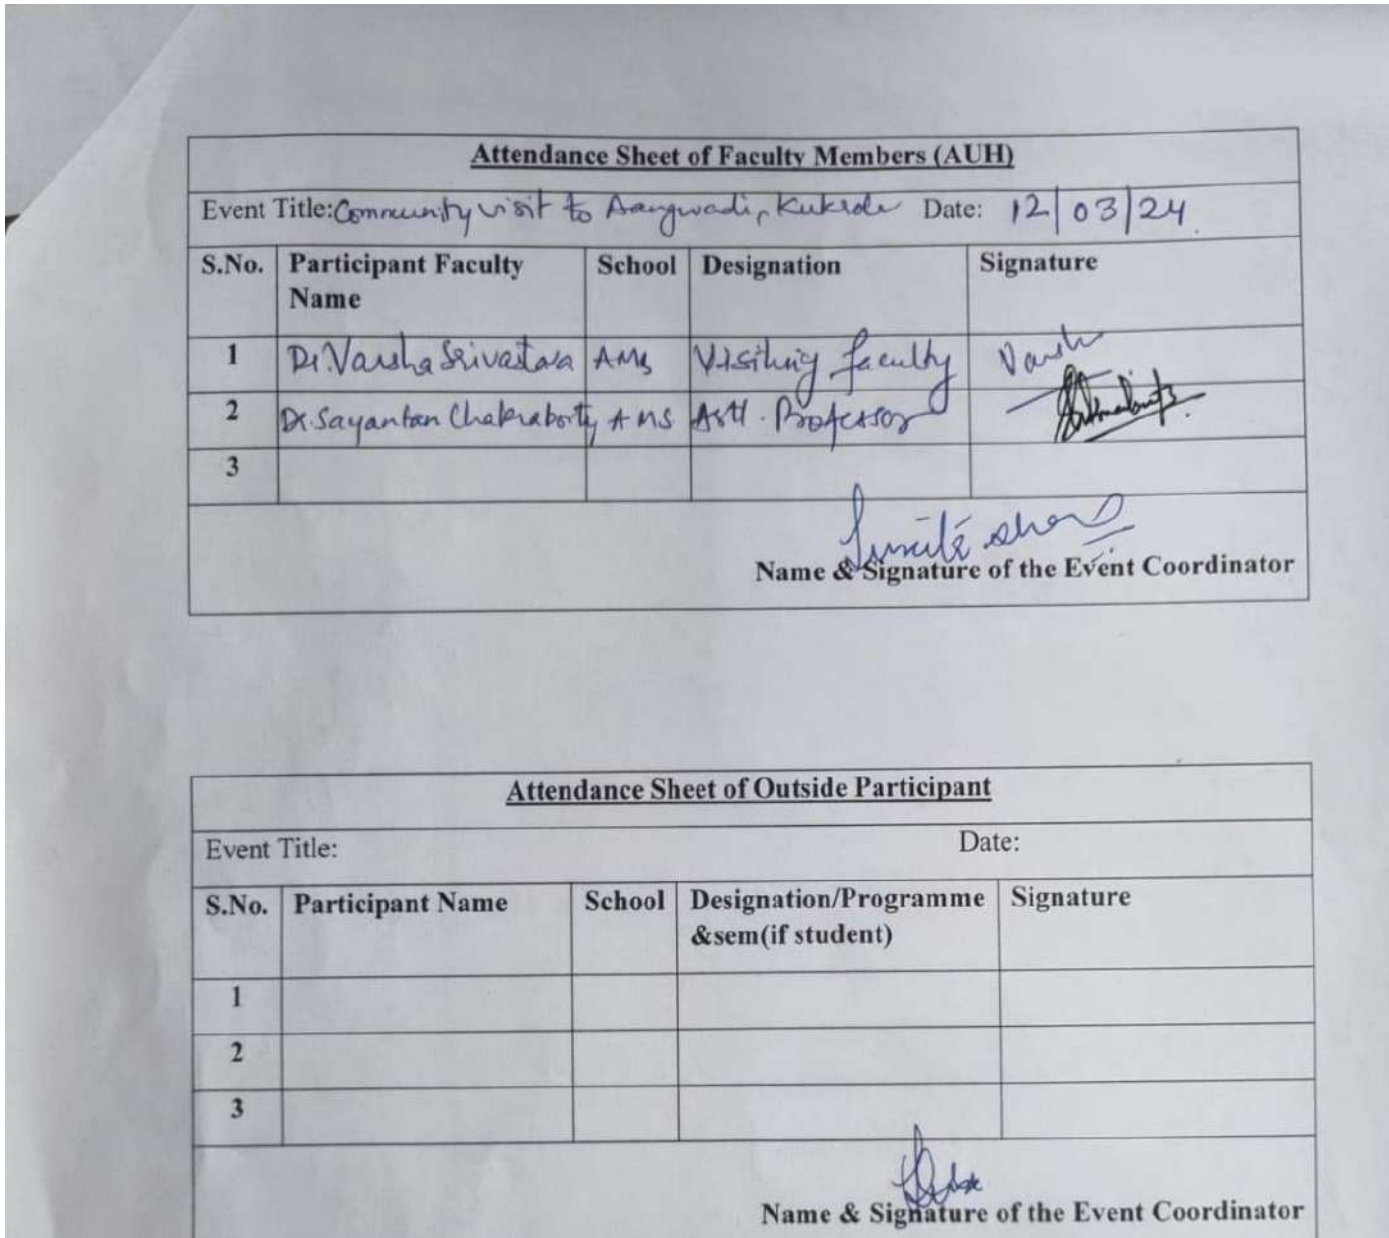 Attendance Sheet of Faculty Members (AUH)
Event Title: Community visit to Aangwadi, Kukrola Date: 12/03/24
S.No. Participant Faculty Name School Designation Signature
1 Dr. Varsha Srivastava AMS Visiting faculty Varsh
2 Dr. Sayantan Chakraborty AMS Astt. Professor
3
Name & Signature of the Event Coordinator
Attendance Sheet of Outside Participant
Event Title: Date:
S.No. Participant Name School Designation/Programme &sem(if student) Signature
1
2
3
Name & Signature of the Event Coordinator